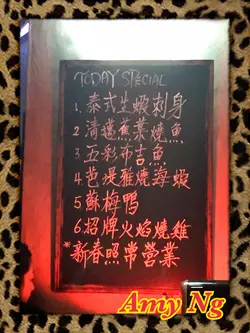 TODAY SPECIAL
1. 泰式生蝦刺身
2 清邁蕉葉燒魚
3 五彩布吉魚
4. 芭堤雅燒海蝦
5 蘇梅鴨
6 招牌火焰燒雞
*新春照常營業
Amy Ng